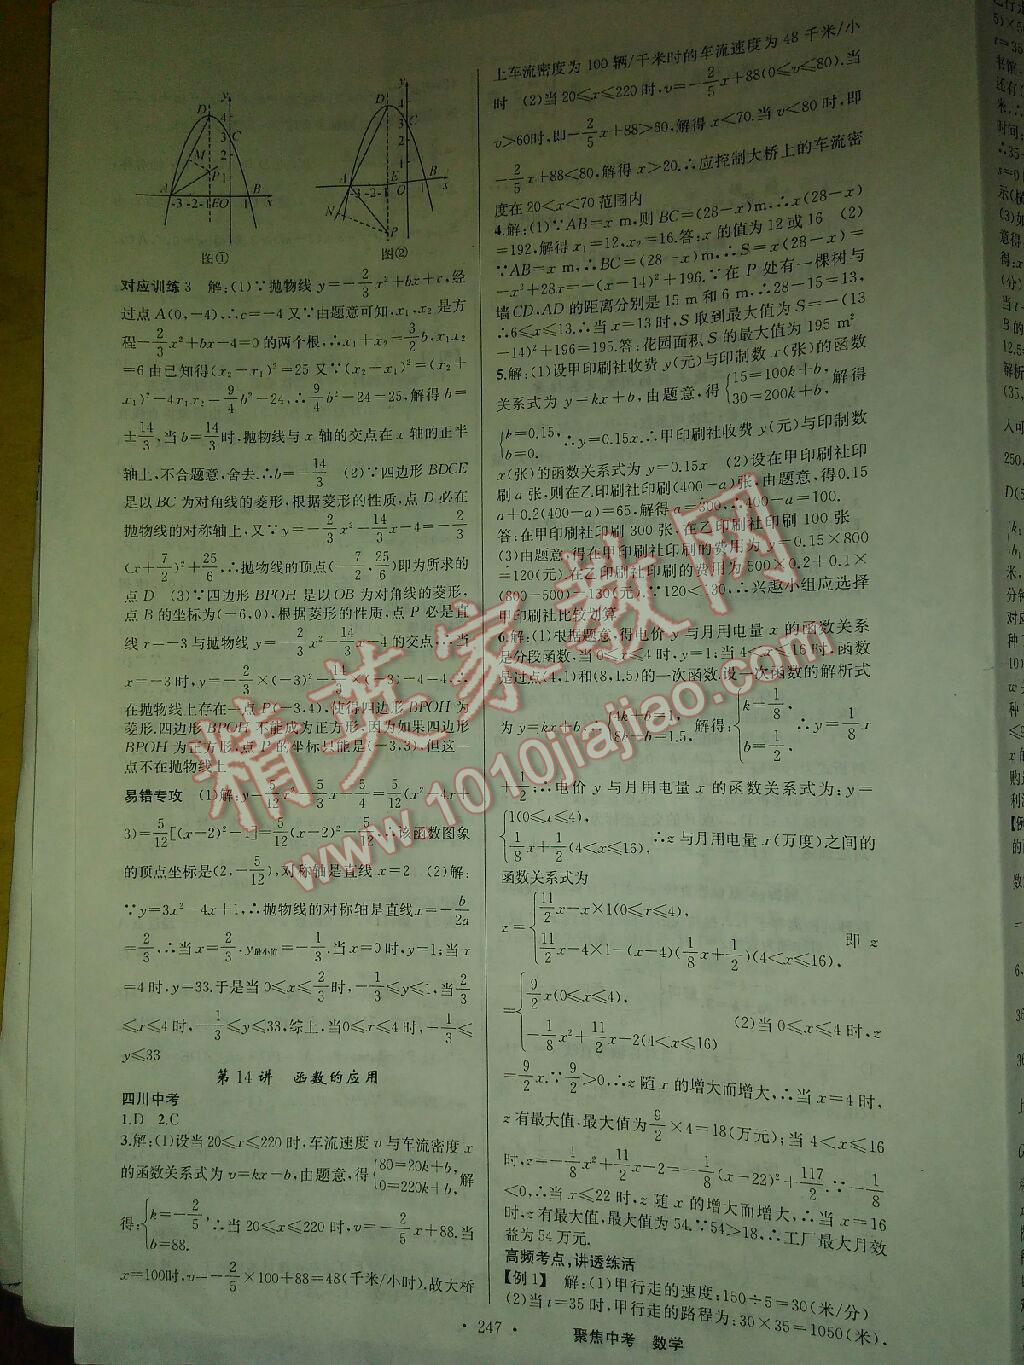 图①
图②
对应训练3 解:(1)∵抛物线y=-2/3x²+bx+c,经
过点A(0,-4),∴c=-4 又∵由题意可知,x₁、x₂是方
程-2/3x²+bx-4=0的两个根,∴x₁+x₂=3/2b,x₁x₂
=6 由已知得(x₂-x₁)²=25 又∵(x₂-x₁)²=(x₂+
x₁)²-4x₁x₂=9/4b²-24,∴9/4b²-24=25,解得b=
±14/3,当b=14/3时,抛物线与x轴的交点在x轴的正半
轴上,不合题意,舍去.∴b=-14/3 (2)∵四边形BDCE
是以BC为对角线的菱形,根据菱形的性质,点D必在
抛物线的对称轴上,又∵y=-2/3x²-14/3x-4=-2/3
(x+7/2)²+25/6,∴抛物线的顶点(-7/2,25/6)即为所求的
点D (3)∵四边形BPOH是以OB为对角线的菱形,
点B的坐标为(-6,0),根据菱形的性质,点P必是直
线x=-3与抛物线y=-2/3x²-14/3x-4的交点,∴当
x=-3时,y=-2/3×(-3)²-14/3×(-3)-4=4,∴
在抛物线上存在一点P(-3,4),使得四边形BPOH为
菱形.四边形BPOH不能成为正方形,因为如果四边形
BPOH为正方形,点P的坐标只能是(-3,3),但这一
点不在抛物线上
易错专攻 (1)解:y=5/12x²-5/3x+5/4=5/12(x²-4x+
3)=5/12[(x-2)²-1]=5/12(x-2)²-5/12,∴该函数图象
的顶点坐标是(2,-5/12),对称轴是直线x=2 (2)解:
∵y=3x²-4x+1,∴抛物线的对称轴是直线x=-b/2a
=2/3.∴当x=2/3,y最小值=-1/3.当x=0时,y=1;当x
=4时,y=33.于是当0≤x≤2/3时,-1/3≤y≤1,当2/3
≤x≤4时,-1/3≤y≤33,综上,当0≤x≤4时,-1/3≤
y≤33
第14讲 函数的应用
四川中考
1.D 2.C
3.解:(1)设当20≤x≤220时,车流速度v与车流密度x
的函数关系式为v=kx+b,由题意,得{80=20k+b, 0=220k+b, 解
得:{k=-2/5, b=88. ∴当20≤x≤220时,v=-2/5x+88.当
x=100时,v=-2/5×100+88=48(千米/小时).故大桥
上车流密度为100辆/千米时的车流速度为48千米/小
时 (2)当20≤x≤220时,v=-2/5x+88(0≤v≤80).当
v>60时,即-2/5x+88>60,解得x<70.当v<80时,即
-2/5x+88<80,解得x>20.∴应控制大桥上的车流密
度在20<x<70范围内
4.解:(1)∵AB=x m,则BC=(28-x)m,∴x(28-x)
=192,解得x₁=12,x₂=16.答:x的值为12或16 (2)
∵AB=x m,∴BC=(28-x)m,∴S=x(28-x)=
-x²+28x=-(x-14)²+196.∵在P处有一棵树与
墙CD,AD的距离分别是15 m和6 m,∴28-15=13,
∴6≤x≤13.∴当x=13时,S取到最大值为S=-(13
-14)²+196=195.答:花园面积S的最大值为195 m²
5.解:(1)设甲印刷社收费y(元)与印制数x(张)的函数
关系式为y=kx+b,由题意,得{15=100k+b, 30=200k+b, 解得
{k=0.15, b=0, ∴y=0.15x.∴甲印刷社收费y(元)与印制数
x(张)的函数关系式为y=0.15x (2)设在甲印刷社印
刷a张,则在乙印刷社印刷(400-a)张,由题意,得0.15
a+0.2(400-a)=65,解得a=300,∴400-a=100.
答:在甲印刷社印刷300张,在乙印刷社印刷100张
(3)由题意,得在甲印刷社印刷的费用为y=0.15×800
=120(元).在乙印刷社印刷的费用为500×0.2+0.1×
(800-500)=130(元).∵120<130,∴兴趣小组应选择
甲印刷社比较划算
6.解:(1)根据题意,得电价y与月用电量x的函数关系
是分段函数.当0≤x≤4时,y=1;当4<x≤16时,函数
是过点(4,1)和(8,1.5)的一次函数,设一次函数的解析式
为y=kx+b,∴{4k+b=1, 8k+b=1.5. 解得:{k=1/8, b=1/2. ∴y=1/8x
+1/2;∴电价y与月用电量x的函数关系式为:y=
{1(0≤x≤4), 1/8x+1/2(4<x≤16), ∴z与月用电量x(万度)之间的
函数关系式为
z={11/2x-x×1(0≤x≤4), 11/2x-4×1-(x-4)(1/8x+1/2)(4<x≤16), 即z
={9/2x(0≤x≤4), -1/8x²+11/2x-2(4<x≤16) (2)当0≤x≤4时,z
=9/2x.∵9/2>0,∴z随x的增大而增大,∴当x=4时,
z有最大值,最大值为9/2×4=18(万元);当4<x≤16
时,z=-1/8x²+11/2x-2=-1/8(x-22)²+117/2.∵-1/8
<0,∴当x≤22时,z随x的增大而增大,∴当x=16
时,z有最大值,最大值为54.∵54>18,∴工厂最大月效
益为54万元.
高频考点,讲透练活
【例1】 解:(1)甲行走的速度:150÷5=30(米/分)
(2)当t=35时,甲行走的路程为:30×35=1050(米).
·247·
聚焦中考 数学
精英家教网
www.1010jiajiao.com